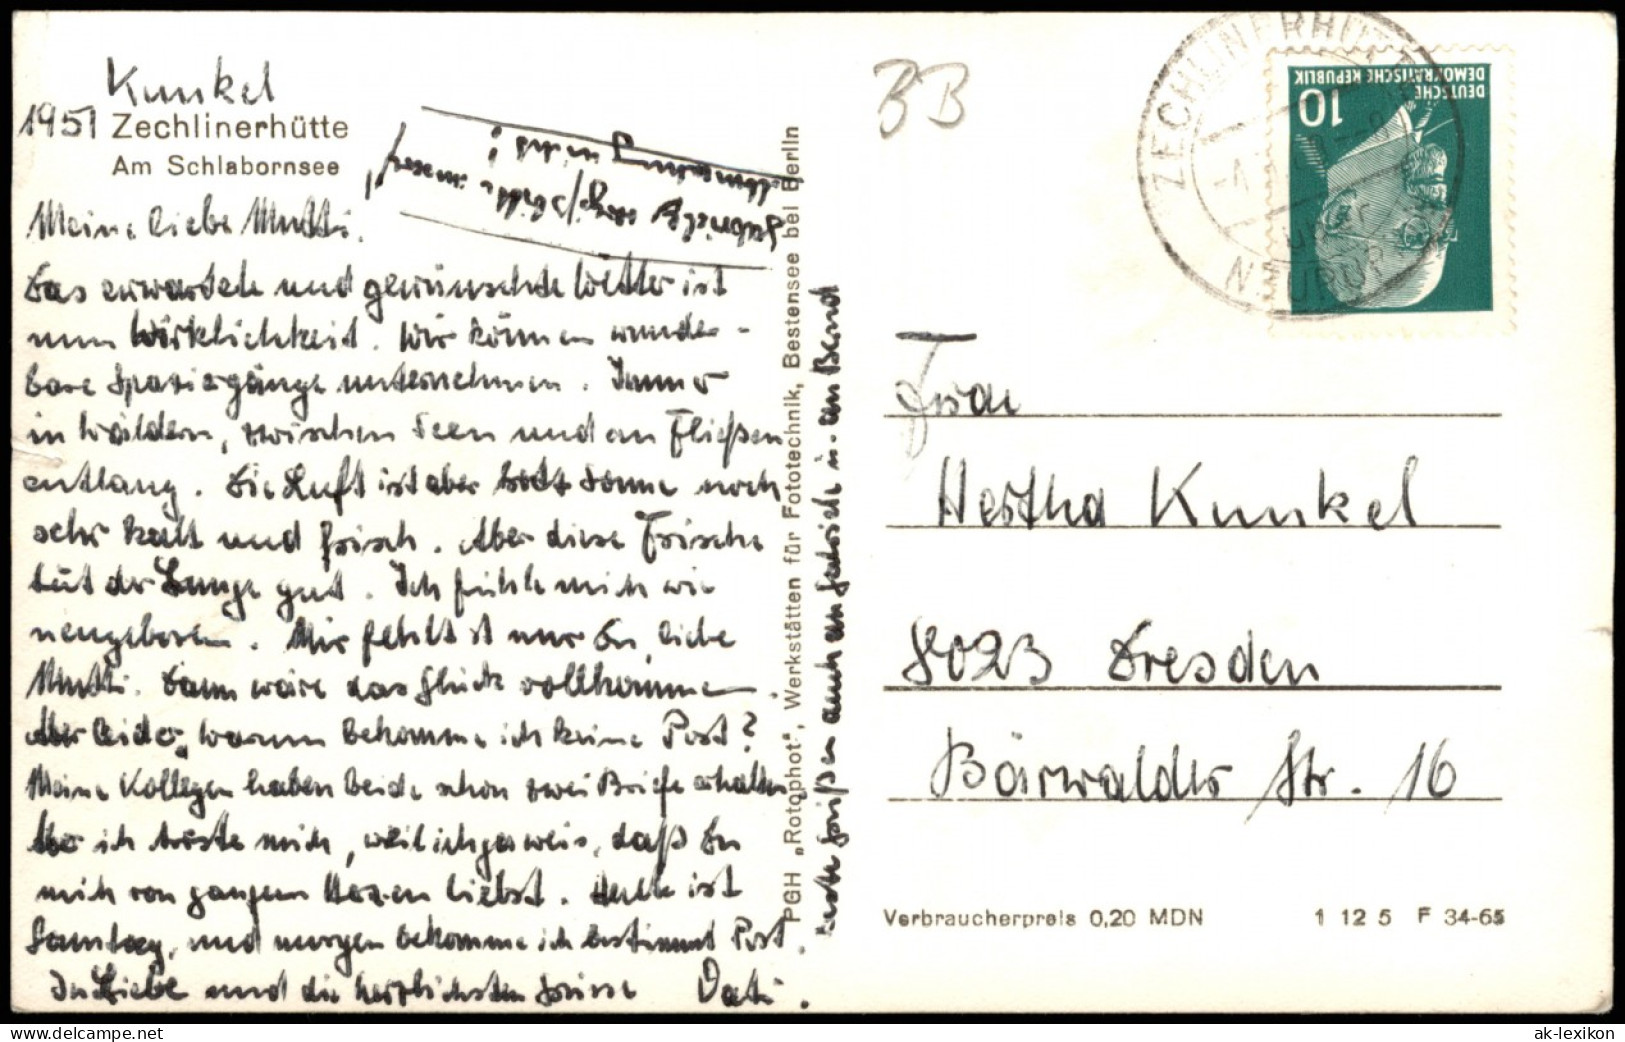 Kunkel
1951 Zechlinerhütte
Am Schlabornsee
Meine liebe Mutti.
Das erwartete und gewünschte Wetter ist
nun Wirklichkeit. Wir können wunder-
bare Spaziergänge unternehmen. Immer
in Wäldern, zwischen Seen und an Fließen
entlang. Die Luft ist aber trotz Sonne noch
sehr kalt und frisch. Aber diese Frische
tut der Lunge gut. Ich fühle mich wie
neugeboren. Mir fehlst nur Du, liebe
Mutti. Dann wäre das Glück vollkommen.
Aber leider, warum bekomme ich keine Post?
Meine Kollegen haben beide schon zwei Briefe erhalten
Aber ich tröste mich, weil ich gewiß, daß Du
mich von ganzem Herzen liebst. Heute ist
Sonntag, und morgen bekomme ich bestimmt Post.
In Liebe und die herzlichsten Grüsse Vati.
PGH „Rotophot", Werkstätten für Fototechnik, Bestensee bei Berlin
Grüßen auch an u. an Bernd
BB
ZECHLINERHÜTTE
DEUTSCHE
DEMOKRATISCHE REPUBLIK
10
Frau
Hertha Kunkel
8023 Dresden
Bärwalder Str. 16
Verbraucherpreis 0,20 MDN 1 12 5 F 34-65
© oldthing.de
ak-lexikon